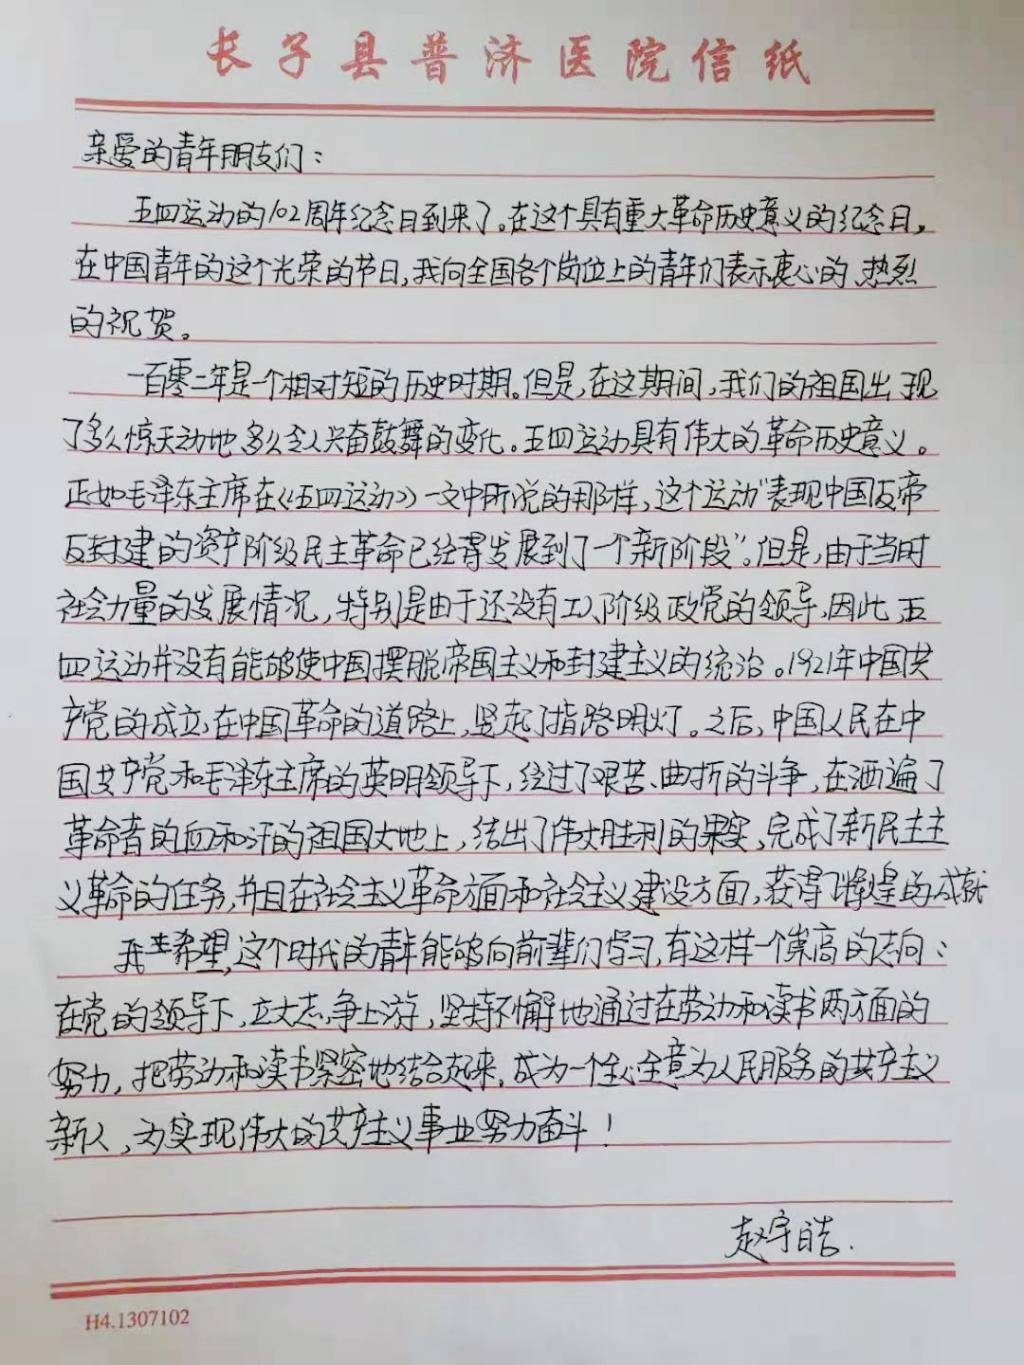 长子县普济医院信纸
亲爱的青年朋友们：
五四运动的102周年纪念日到来了。在这个具有重大革命历史意义的纪念日，
在中国青年的这个光荣的节日，我向全国各个岗位上的青年们表示衷心的、热烈
的祝贺。
一百零二年是一个相对短的历史时期。但是，在这期间，我们的祖国出现
了多么惊天动地多么令人兴奋鼓舞的变化。五四运动具有伟大的革命历史意义。
正如毛泽东主席在《五四运动》一文中所说的那样，这个运动“表现中国反帝
反封建的资产阶级民主革命已经得发展到了一个新阶段”。但是，由于当时
社会力量的发展情况，特别是由于还没有工人阶级政党的领导，因此，五
四运动并没有能够使中国摆脱帝国主义和封建主义的统治。1921年中国共
产党的成立，在中国革命的道路上，竖起了指路明灯。之后，中国人民在中
国共产党和毛泽东主席的英明领导下，经过了艰苦、曲折的斗争，在洒遍了
革命者的血和汗的祖国大地上，结出了伟大胜利的果实，完成了新民主主
义革命的任务，并且在社会主义革命方面和社会主义建设方面，获得了辉煌的成就
我希望，这个时代的青年能够向前辈们学习，有这样一个崇高的志向：
在党的领导下，立大志，争上游，坚持不懈地通过在劳动和读书两方面的
努力，把劳动和读书紧密地结合起来，成为一个全心全意为人民服务的共产主义
新人，为实现伟大的共产主义事业努力奋斗！
赵宇皓.
H4.1307102